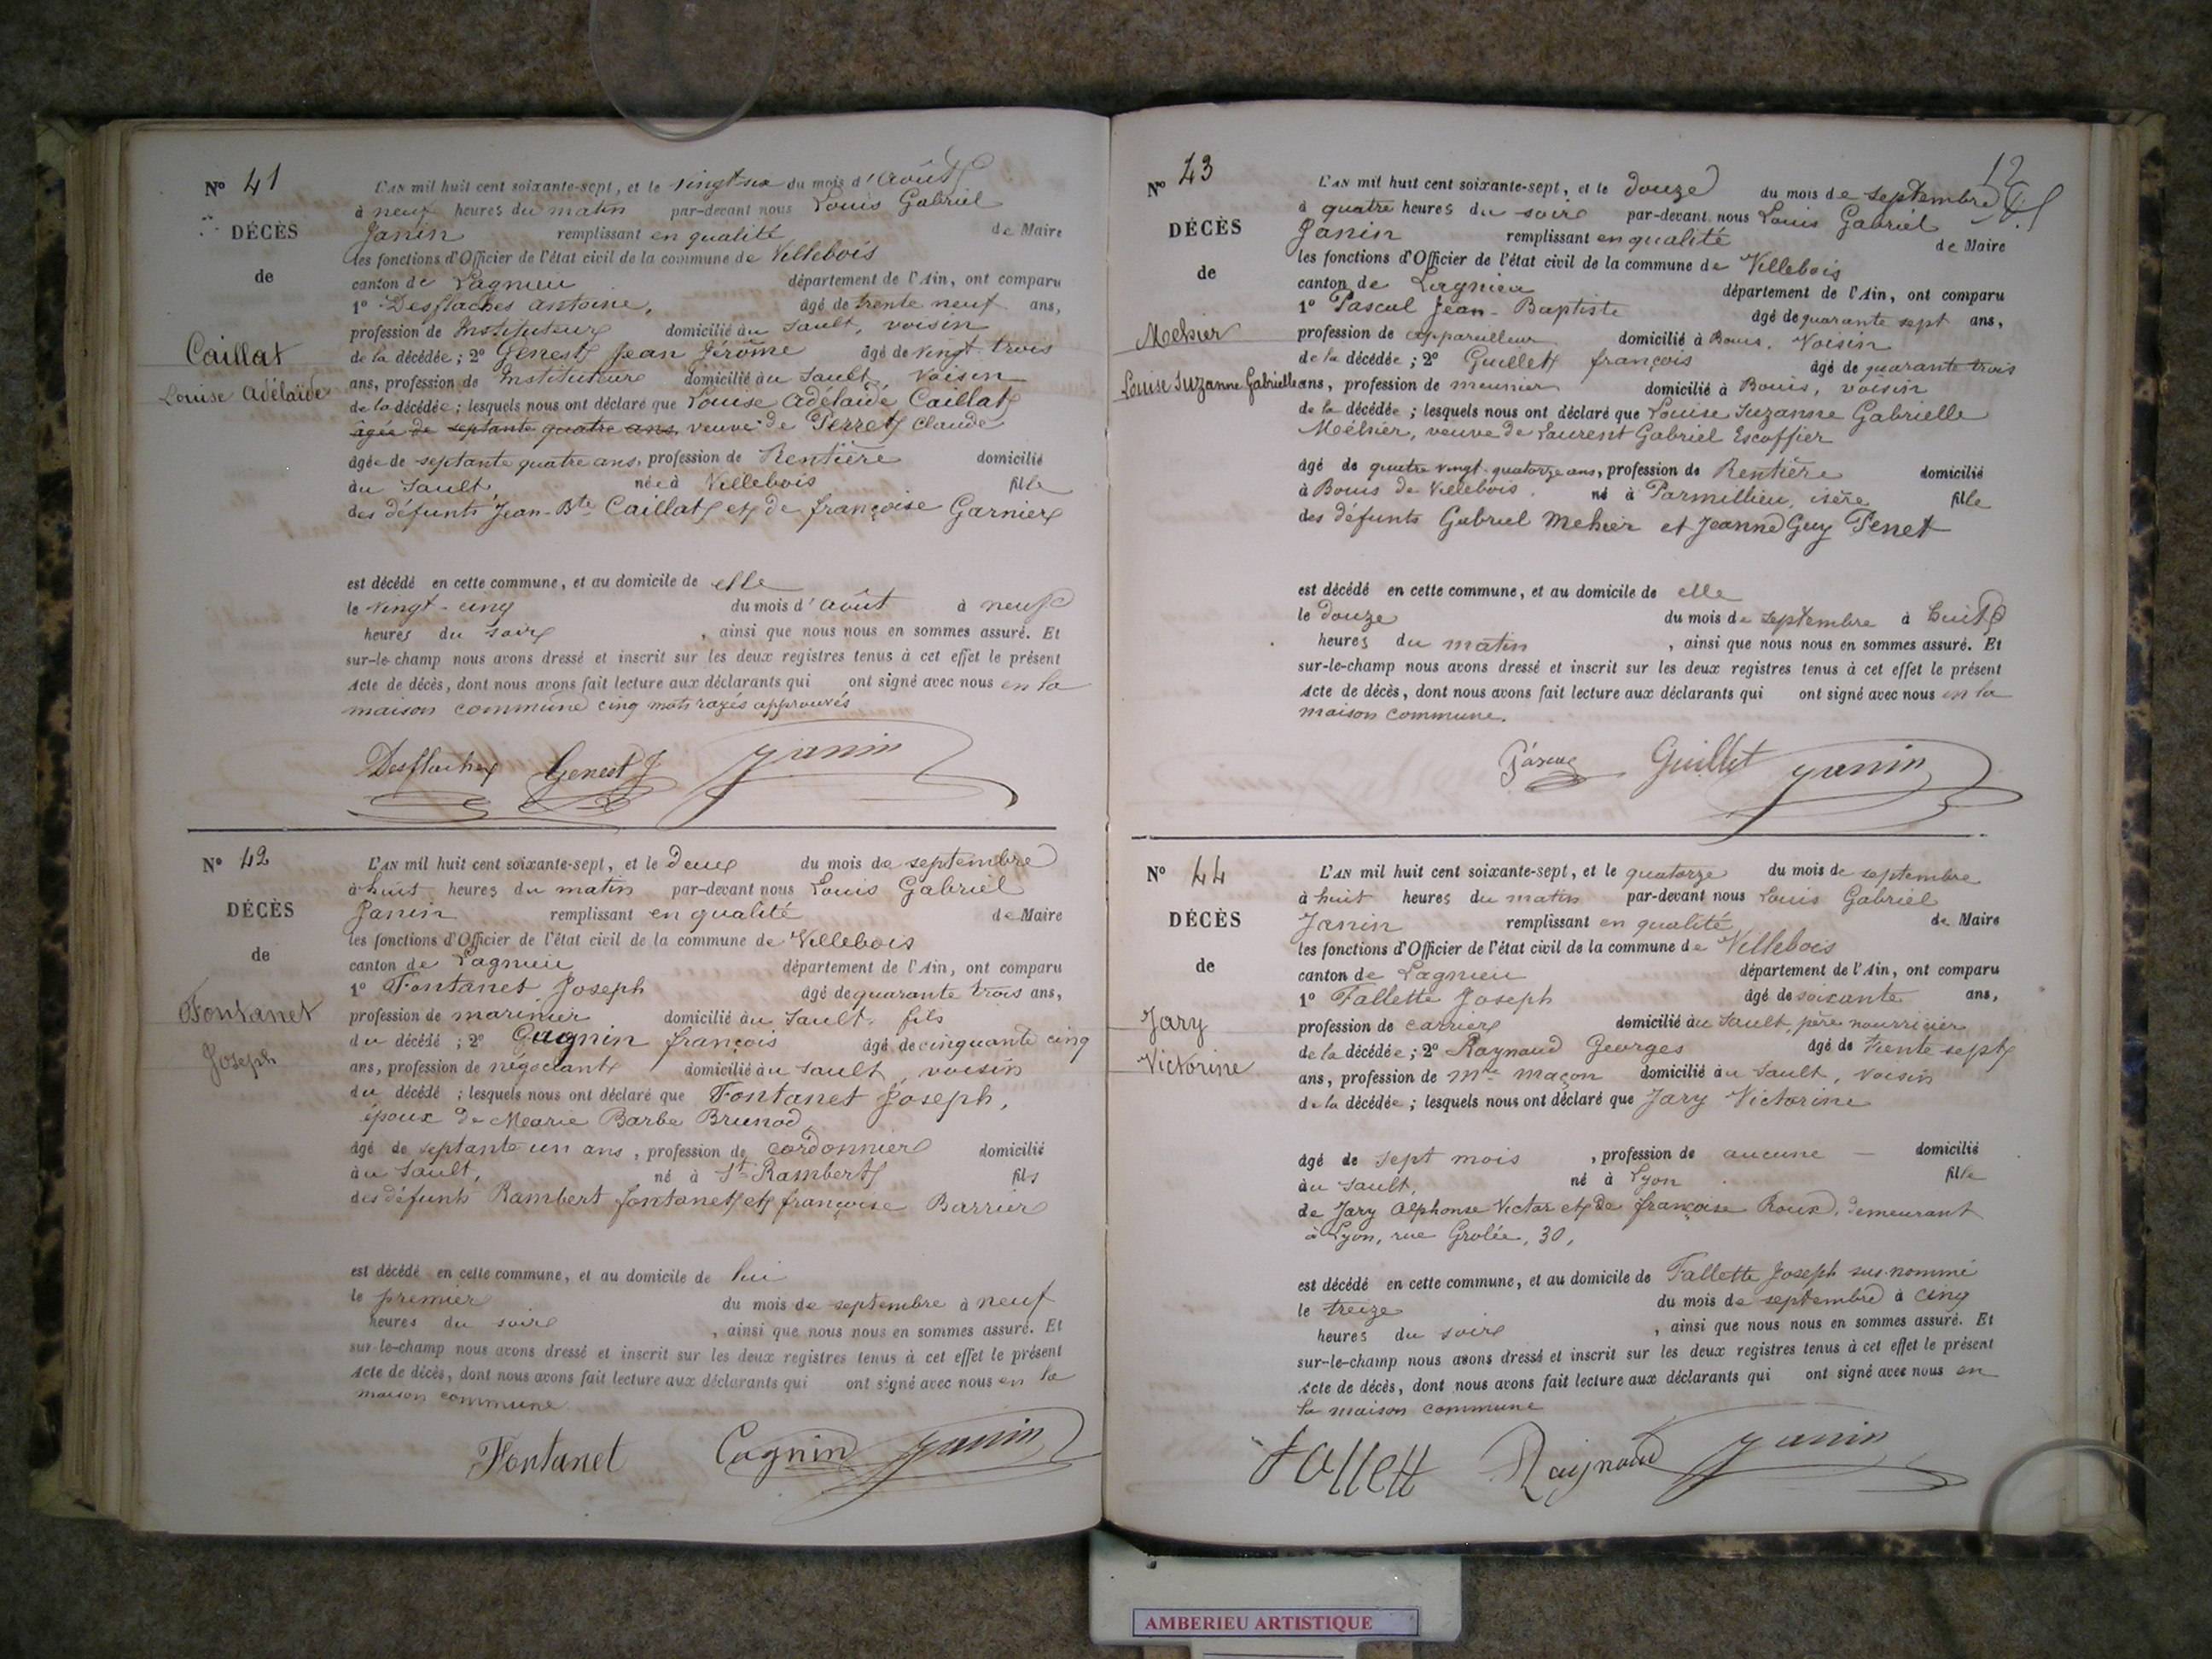 N° 41
DÉCÈS
de
Caillat
Louise Adélaïde
L'AN mil huit cent soixante-sept, et le vingt-six du mois d'Août
à neuf heures du matin par-devant nous Louis Gabriel
Janin remplissant en qualité de Maire
les fonctions d'Officier de l'état civil de la commune de Villebois
canton de Lagnieu département de l'Ain, ont comparu
1° Desflaches Antoine, âgé de trente neuf ans,
profession de Instituteur domicilié au Sault, voisin
de la décédée ; 2° Genest Jean Jérôme âgé de vingt-trois
ans, profession de Instituteur domicilié au Sault, voisin
de la décédée ; lesquels nous ont déclaré que Louise Adélaïde Caillat
âgée de septante quatre ans, veuve de Perret Claude
âgée de septante quatre ans, profession de Rentière domicilié
au Sault, née à Villebois fille
des défunts Jean-Bte Caillat et de françoise Garnier
est décédé en cette commune, et au domicile de elle
le vingt-cinq du mois d'août à neuf
heures du soir, ainsi que nous nous en sommes assuré. Et
sur-le-champ nous avons dressé et inscrit sur les deux registres tenus à cet effet le présent
Acte de décès, dont nous avons fait lecture aux déclarants qui ont signé avec nous en la
maison commune cinq mots rayés approuvés
Desflaches Genest J Janin
N° 42
DÉCÈS
de
Fontanet
Joseph
L'AN mil huit cent soixante-sept, et le deux du mois de septembre
à huit heures du matin par-devant nous Louis Gabriel
Janin remplissant en qualité de Maire
les fonctions d'Officier de l'état civil de la commune de Villebois
canton de Lagnieu département de l'Ain, ont comparu
1° Fontanet Joseph âgé de quarante trois ans,
profession de marinier domicilié au Sault, fils
du décédé ; 2° Gagnin françois âgé de cinquante cinq
ans, profession de négociant domicilié au Sault, voisin
du décédé ; lesquels nous ont déclaré que Fontanet Joseph,
époux de Marie Barbe Brunod,
âgé de septante un ans, profession de cordonnier domicilié
au Sault, né à St Rambert fils
des défunts Rambert fontanet et françoise Barrier
est décédé en cette commune, et au domicile de lui
le premier du mois de septembre à neuf
heures du soir, ainsi que nous nous en sommes assuré. Et
sur-le-champ nous avons dressé et inscrit sur les deux registres tenus à cet effet le présent
Acte de décès, dont nous avons fait lecture aux déclarants qui ont signé avec nous en la
maison commune
Fontanet Cagnin Janin
12
N° 43
DÉCÈS
de
Mehier
Louise Suzanne Gabrielle
L'AN mil huit cent soixante-sept, et le douze du mois de septembre
à quatre heures du soir par-devant nous Louis Gabriel
Janin remplissant en qualité de Maire
les fonctions d'Officier de l'état civil de la commune de Villebois
canton de Lagnieu département de l'Ain, ont comparu
1° Pascal Jean-Baptiste âgé de quarante sept ans,
profession de appareilleur domicilié à Bouis, Voisin
de la décédée ; 2° Guillet françois âgé de quarante trois
ans, profession de meunier domicilié à Bouis, voisin
de la décédée ; lesquels nous ont déclaré que Louise Suzanne Gabrielle
Méhier, veuve de Laurent Gabriel Escoffier
âgé de quatre vingt-quatorze ans, profession de Rentière domicilié
à Bouis de Villebois. né à Parmilieu, isère fille
des défunts Gabriel Mehier et Jeanne Guy Penet
est décédé en cette commune, et au domicile de elle
le douze du mois de septembre à huit
heures du matin, ainsi que nous nous en sommes assuré. Et
sur-le-champ nous avons dressé et inscrit sur les deux registres tenus à cet effet le présent
Acte de décès, dont nous avons fait lecture aux déclarants qui ont signé avec nous en la
maison commune.
Pascal Guillet Janin
N° 44
DÉCÈS
de
Jary
Victorine
L'AN mil huit cent soixante-sept, et le quatorze du mois de septembre
à huit heures du matin par-devant nous Louis Gabriel
Janin remplissant en qualité de Maire
les fonctions d'Officier de l'état civil de la commune de Villebois
canton de Lagnieu département de l'Ain, ont comparu
1° Fallette Joseph âgé de soixante ans,
profession de carrier domicilié au Sault, père nourricier
de la décédée ; 2° Raynaud Georges âgé de trente sept
ans, profession de Mtre maçon domicilié au Sault, voisin
de la décédée ; lesquels nous ont déclaré que Jary Victorine
âgé de sept mois, profession de aucune domicilié
au Sault, né à Lyon fille
de Jary Alphonse Victor et de françoise Roux, demeurant
à Lyon, rue Grolée, 30,
est décédé en cette commune, et au domicile de Fallette Joseph sus-nommé
le treize du mois de septembre à cinq
heures du soir, ainsi que nous nous en sommes assuré. Et
sur-le-champ nous avons dressé et inscrit sur les deux registres tenus à cet effet le présent
Acte de décès, dont nous avons fait lecture aux déclarants qui ont signé avec nous en
la maison commune
Fallett Raynaud Janin
AMBERIEU ARTISTIQUE